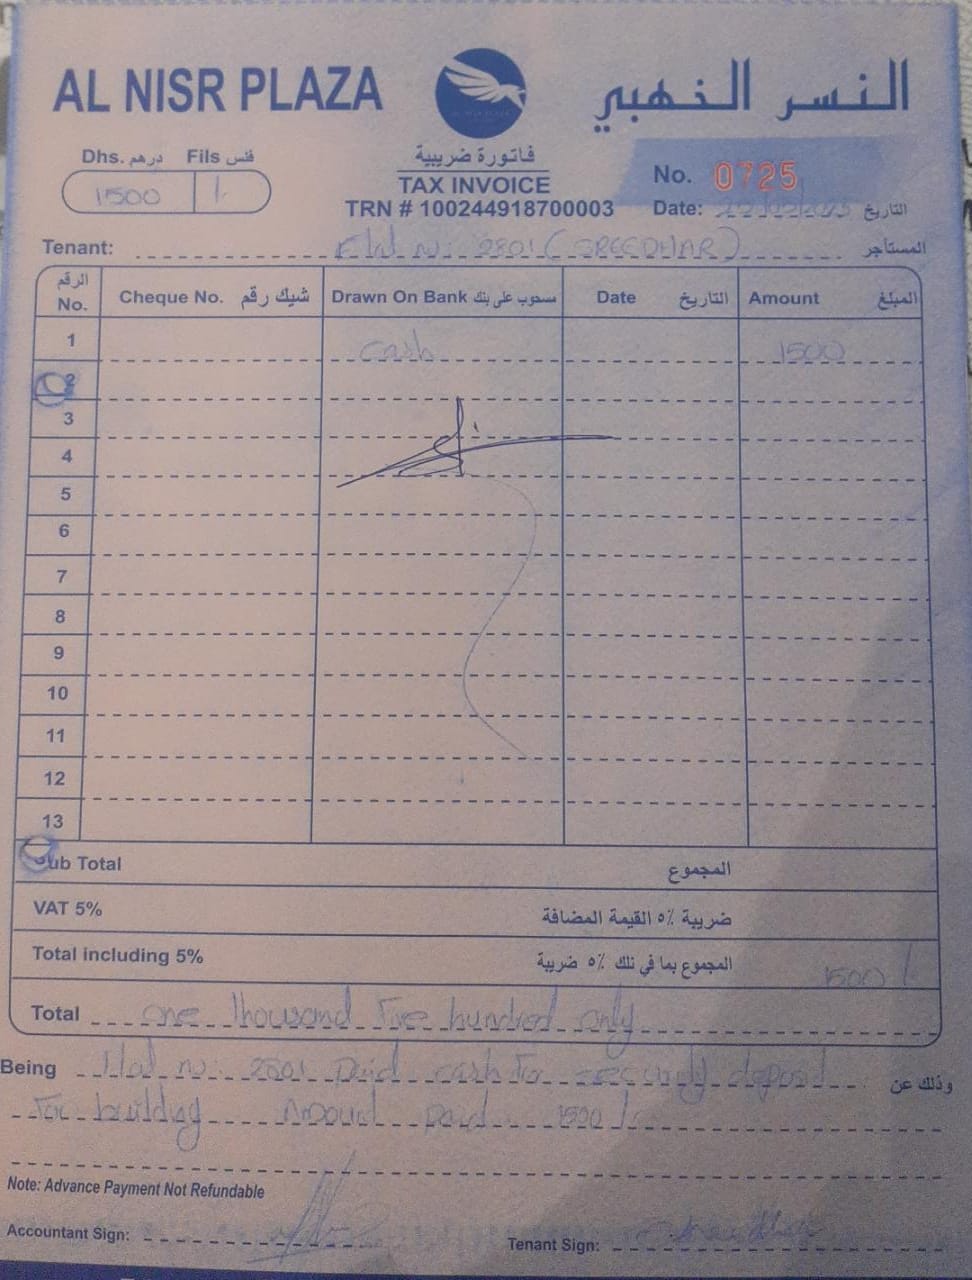 AL NISR PLAZA
النسر الذهبي
Dhs. درهم Fils فلس
1500 /-
فاتورة ضريبية
TAX INVOICE
TRN # 100244918700003
No. 0725
Date: التاريخ
Tenant: Flat No: 2801 (SREEDHAR) المستأجر
الرقم No. Cheque No. شيك رقم Drawn On Bank مسحوب على بنك Date التاريخ Amount المبلغ
1 Cash 1500
2
3
4
5
6
7
8
9
10
11
12
13
Sub Total المجموع
VAT 5% ضريبة ٥٪ القيمة المضافة
Total including 5% المجموع بما في تلك ٥٪ ضريبة 1500 /-
Total One Thousand Five hundred only
Being Flat no: 2801 paid cash for security deposit وذلك عن
For building Amount paid 1500 /-
Note: Advance Payment Not Refundable
Accountant Sign:
Tenant Sign: